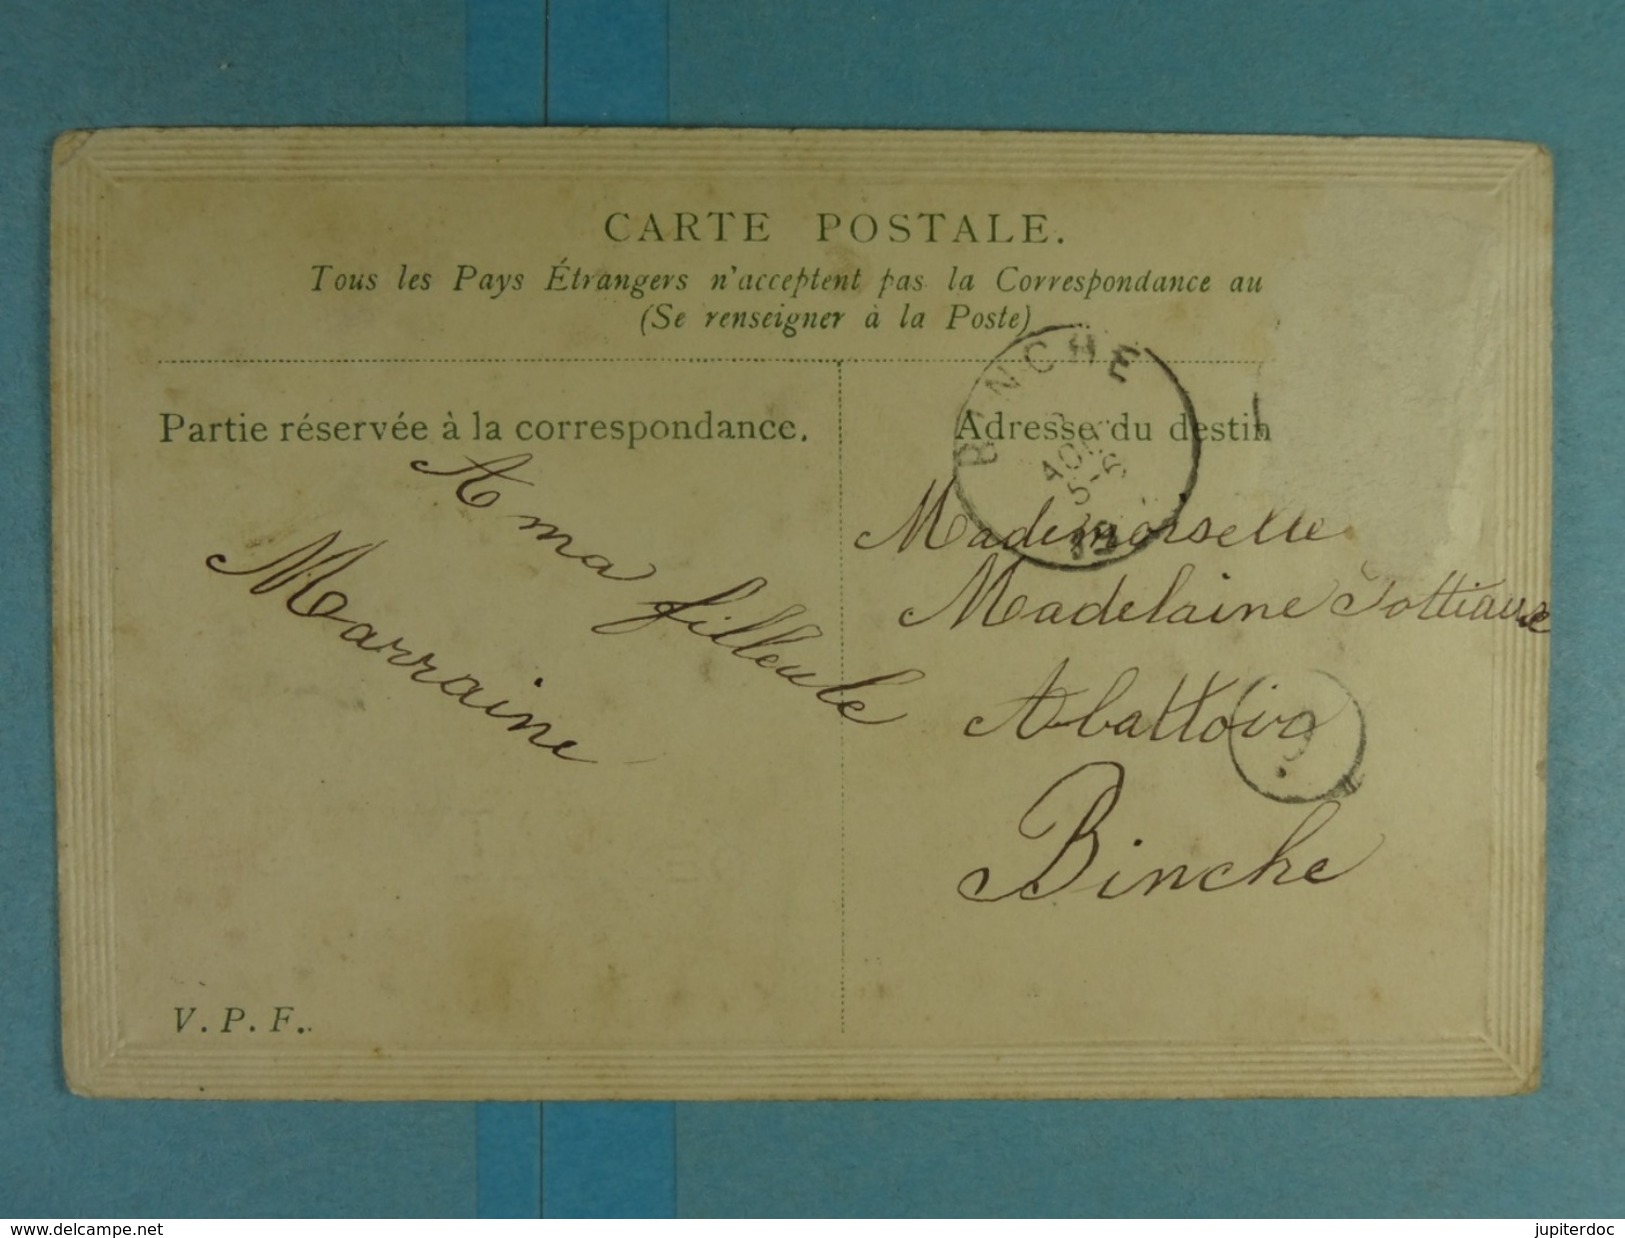 CARTE POSTALE.
Tous les Pays Étrangers n'acceptent pas la Correspondance au
(Se renseigner à la Poste)
Partie réservée à la correspondance.
A ma filleule
Marraine
V. P. F.
BINCHE
Adresse du destin
Mademoiselle
Madelaine Sottiaux
Abattoir
Binche
www.delcampe.net
jupiterdoc